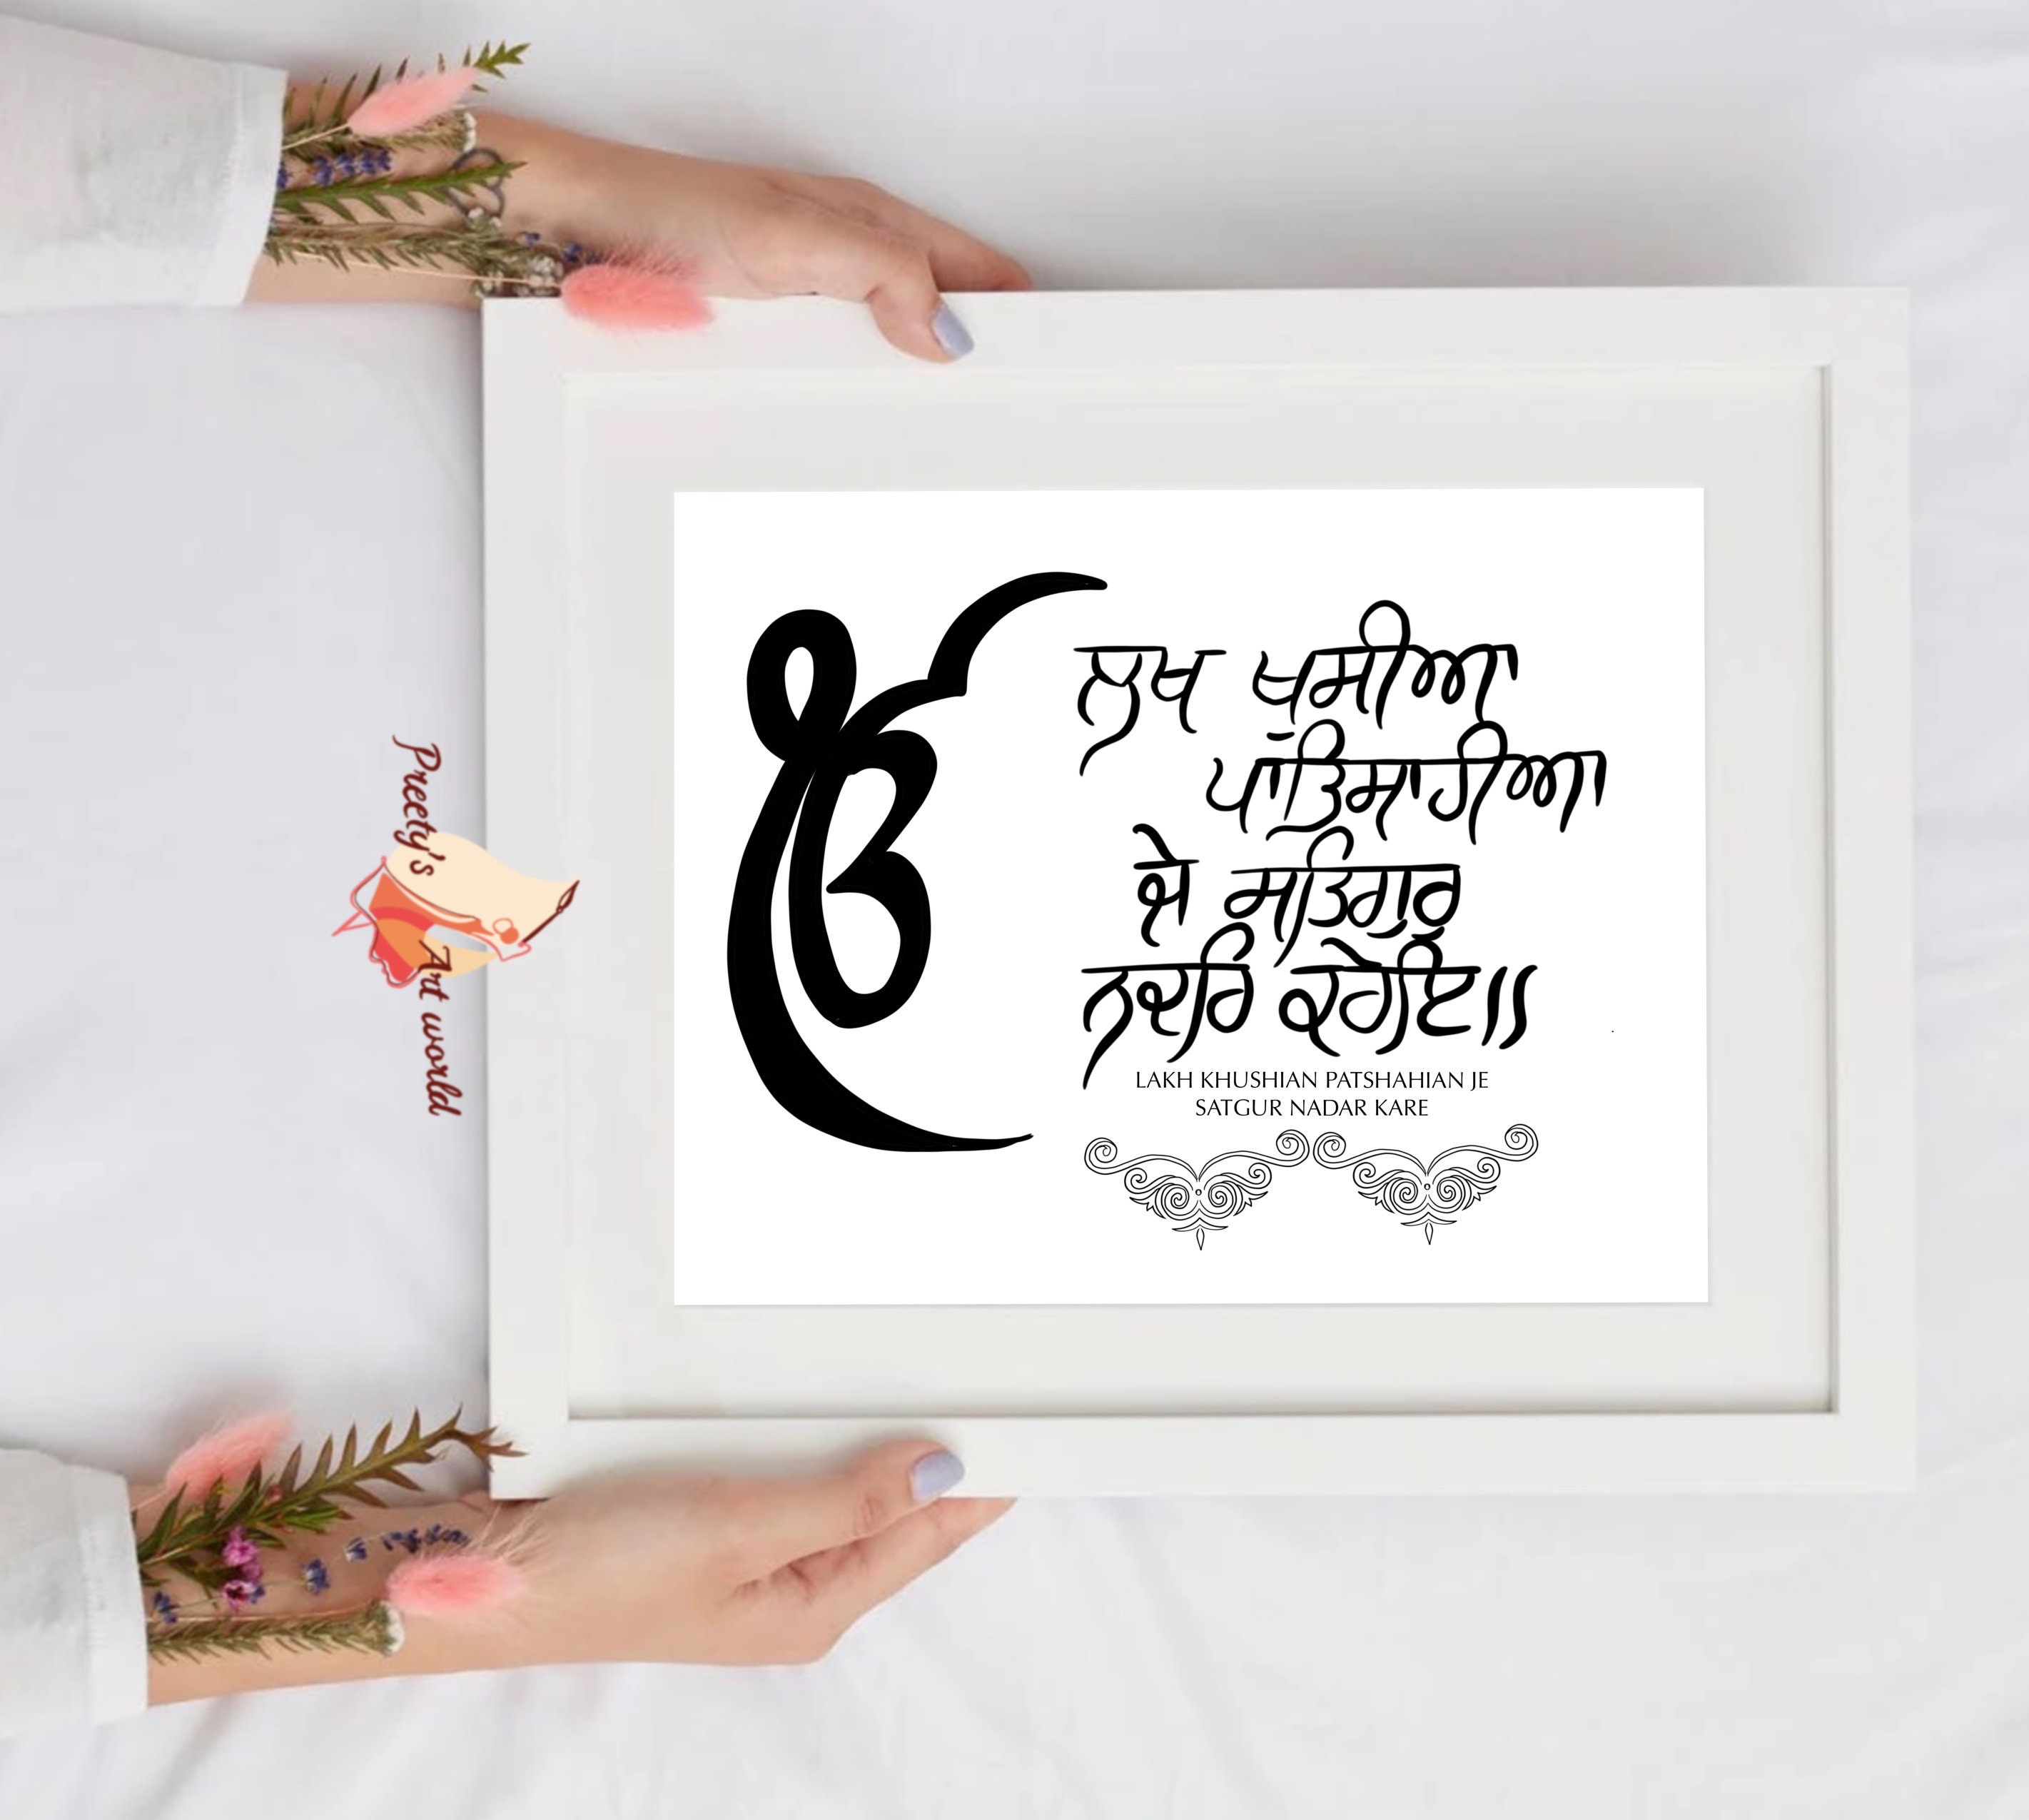 ੴ
ਲਖ ਖੁਸੀਆ
ਪਾਤਿਸਾਹੀਆ
ਜੇ ਸਤਿਗੁਰੁ
ਨਦਰਿ ਕਰੇਇ॥
LAKH KHUSHIAN PATSHAHIAN JE
SATGUR NADAR KARE
Preety's
Art world